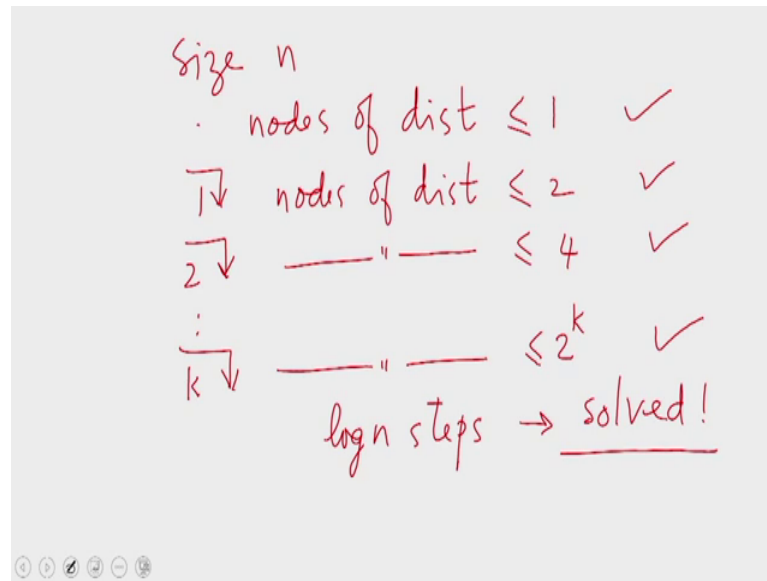 size n
. nodes of dist ≤ 1 ✓
1 nodes of dist ≤ 2 ✓
2 —— " —— ≤ 4 ✓
:
k —— " —— ≤ 2^k ✓
log n steps → solved!